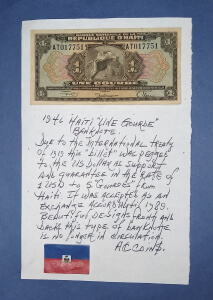 REPUBLIQUE D'HAITI
AT017751 AT017751
UNE GOURDE
1940 HAITI "UNE GOURDE"
BANKNOTE.
DUE TO THE INTERNATIONAL TREATY
OF 1919 THE "BILLET" WAS
TO THE US DOLLAR AS SUPPORT
AND GUARANTEE IN THE RATE OF
1 USD TO 5 GOURDES FROM
HAITI. IT WAS ACCEPTED AS AN
EXCHANGE ACCORD UNTIL 1989.
BEAUTIFUL DESIGNS FRONT AND
BACK THIS TYPE OF BANKNOTE
IS NO LONGER IN CIRCULATION.
A.C COINS.